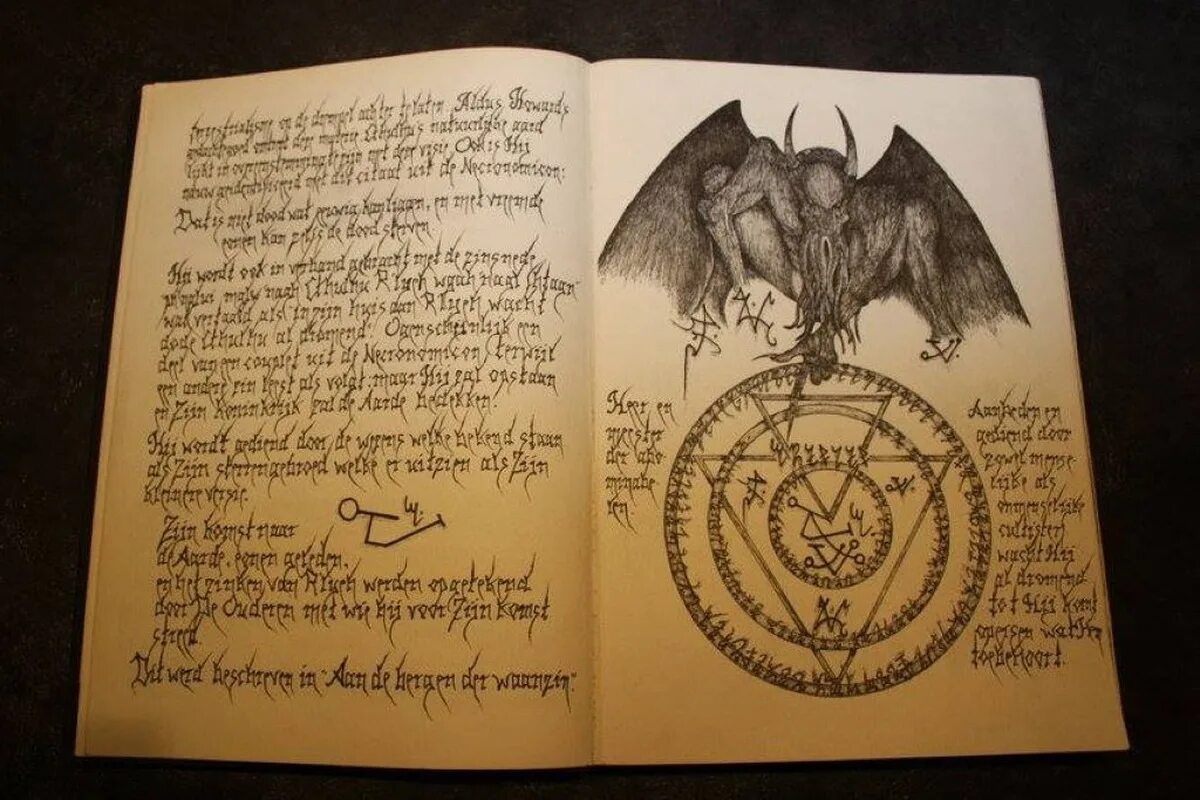 en de drempel achter te laten. Aldus Howards
omtrent deze Cthulhu's natuurlijke aard
lijkt in overeenstemming te zijn met deze visie. Ook is Hij
nauw geïdentificeerd met dit citaat uit de Necronomicon:
Dat is niet dood wat eeuwig kan liggen, en met vreemde
eonen kan zelfs de dood sterven.
Hij wordt ook in verband gebracht met de zinsnede
mglw naah Cthulhu R'lyeh wgah nagl fhtagn"
wat vertaald als "in zijn huis aan R'lyeh wacht
dode Cthulhu al dromend". Ogenschijnlijk een
deel van een couplet uit de Necronomicon, terwijl
een andere zin leest als volgt: maar Hij zal opstaan
en Zijn koninkrijk zal de Aarde bedekken.
Hij wordt gediend door de wezens welke bekend staan
als Zijn sterrengebroed welke er uitzien als Zijn
kleinere versie.
Zijn komst naar
de Aarde, eonen geleden,
en het zinken van R'lyeh werden opgetekend
door De Ouderen met wie hij voor Zijn komst
streed.
Dit werd beschreven in "Aan de bergen der waanzin".
Heer en
meester
der abo
minabe
len.
Aanbeden en
gediend door
zowel mense-
lijke als
onmenselijke
cultisten
wacht Hij
al dromend
tot Hij komt
opeisen wat Hem
toebehoort.